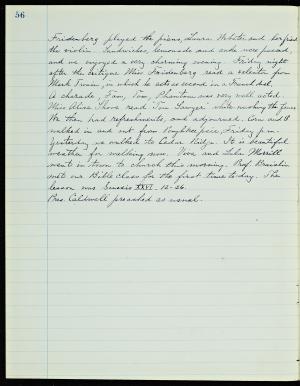 56
Friedenberg played the piano, Laura Webster and
the violin. Sandwiches, lemonade and cake were passed,
and we enjoyed a very charming evening. Friday night
after the critique Miss Friedenberg read a selection from
Mark Twain, in which he acts as second in a French duel.
A charade, Fan, Tom, Phantom was very well acted.
Miss Alice Shove read "Tom Sawyer" while
We then had refreshments, and adjourned. Cora and I
walked in and out from Poughkeepsie, Friday p.m.
Yesterday we walked to Cedar Ridge. It is beautiful
weather for walking now. Nova and Lelia Merrill
went in town to church this morning. Prof. Braislin
met our Bible class for the first time to-day. The
lesson was Genesis XXVI. 12-26.
Pres. Caldwell presided as usual.